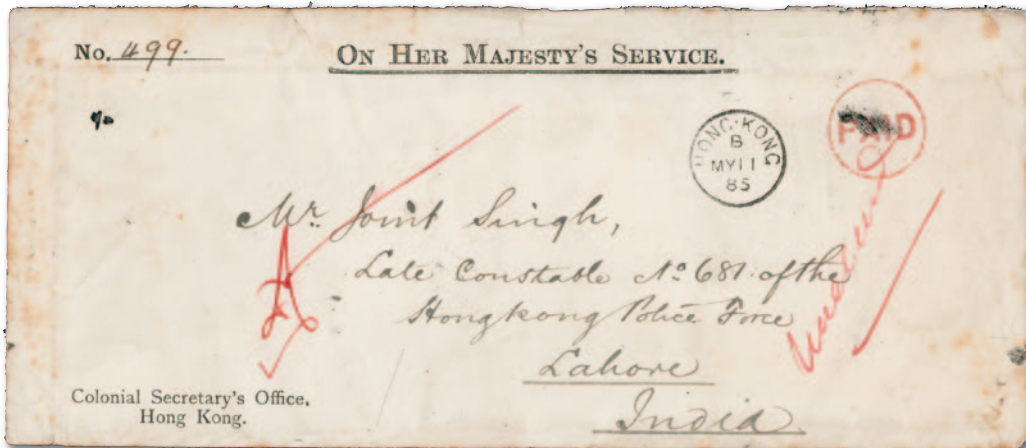 No. 499.
ON HER MAJESTY'S SERVICE.
HONG-KONG
B
MY 11
85
PAID
Mr. Joint Singh,
Late Constable No 681 of the
Hongkong Police Force
Lahore
India
Colonial Secretary's Office,
Hong Kong.